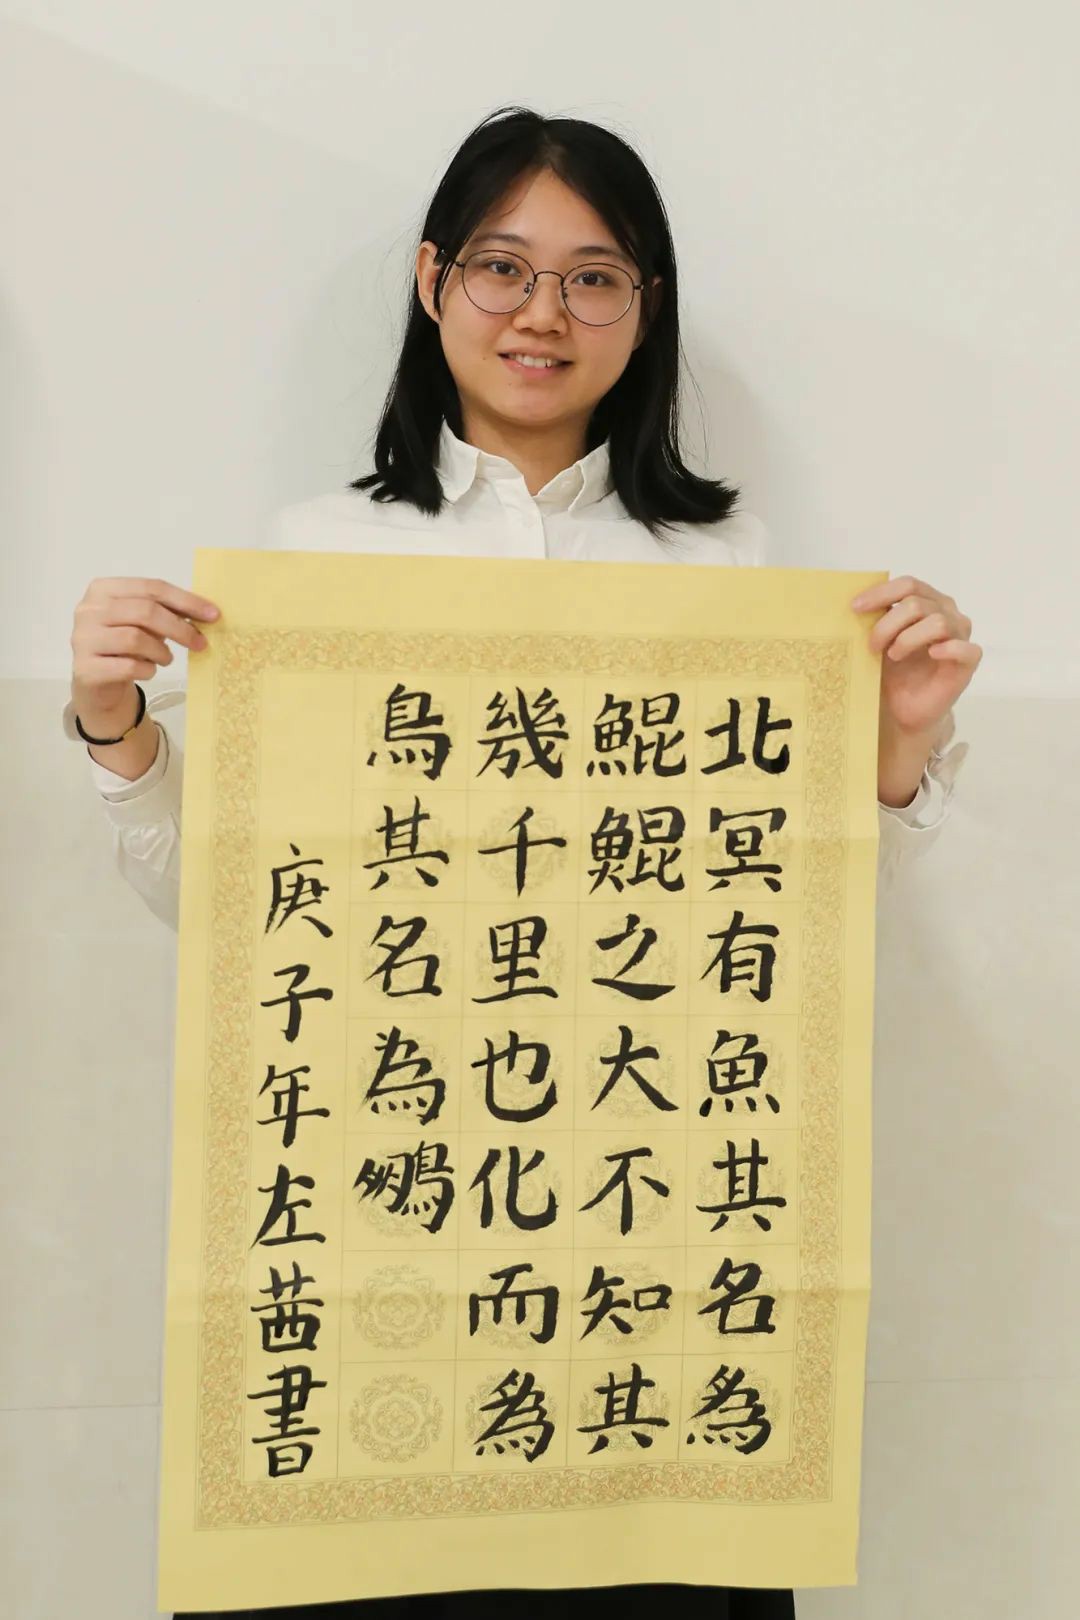 北冥有魚其名為
鯤鯤之大不知其
幾千里也化而為
鳥其名為鵬
庚子年左茜書